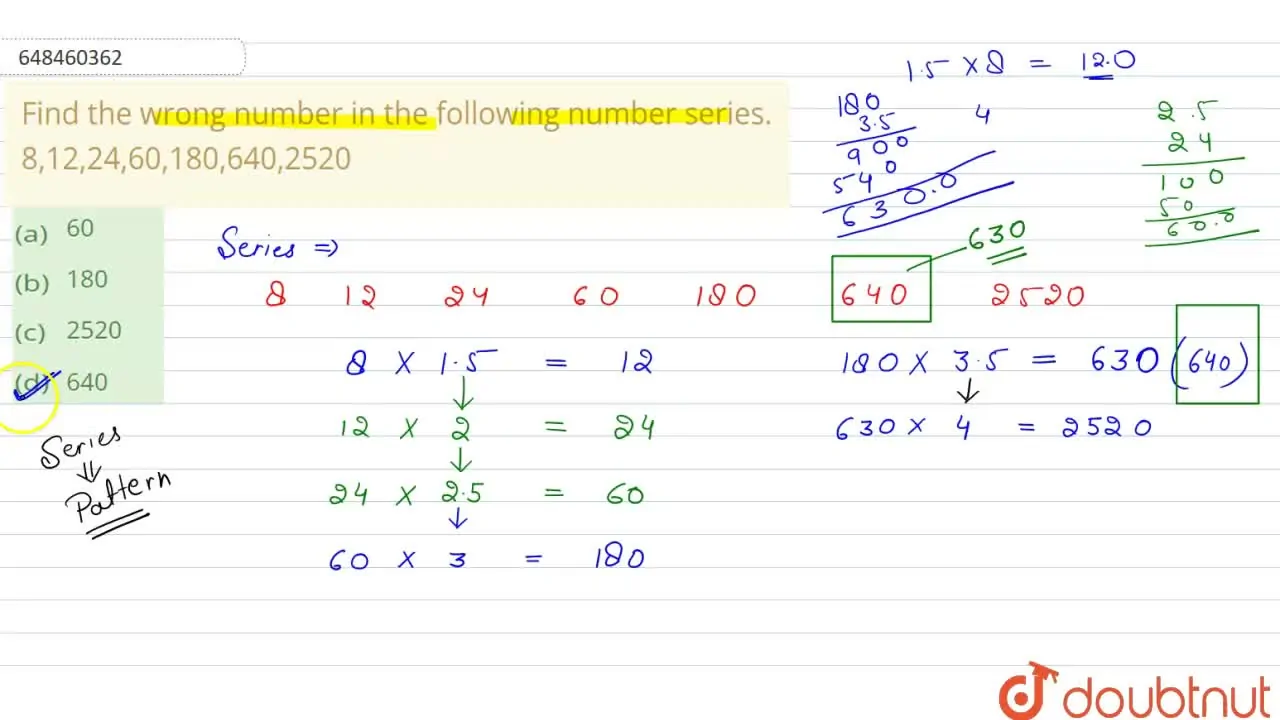 648460362
Find the wrong number in the following number series.
8,12,24,60,180,640,2520
(a) 60
(b) 180
(c) 2520
(d) 640
Series
⇓
Pattern
Series ⇒
1.5 × 8 = 12.0
180
3.5
900
540
630.0
4
2.5
24
100
50
60.0
630
8 12 24 60 180 640 2520
8 × 1.5 = 12
↓
12 × 2 = 24
↓
24 × 2.5 = 60
↓
60 × 3 = 180
180 × 3.5 = 630 (640)
↓
630 × 4 = 2520
doubtnut